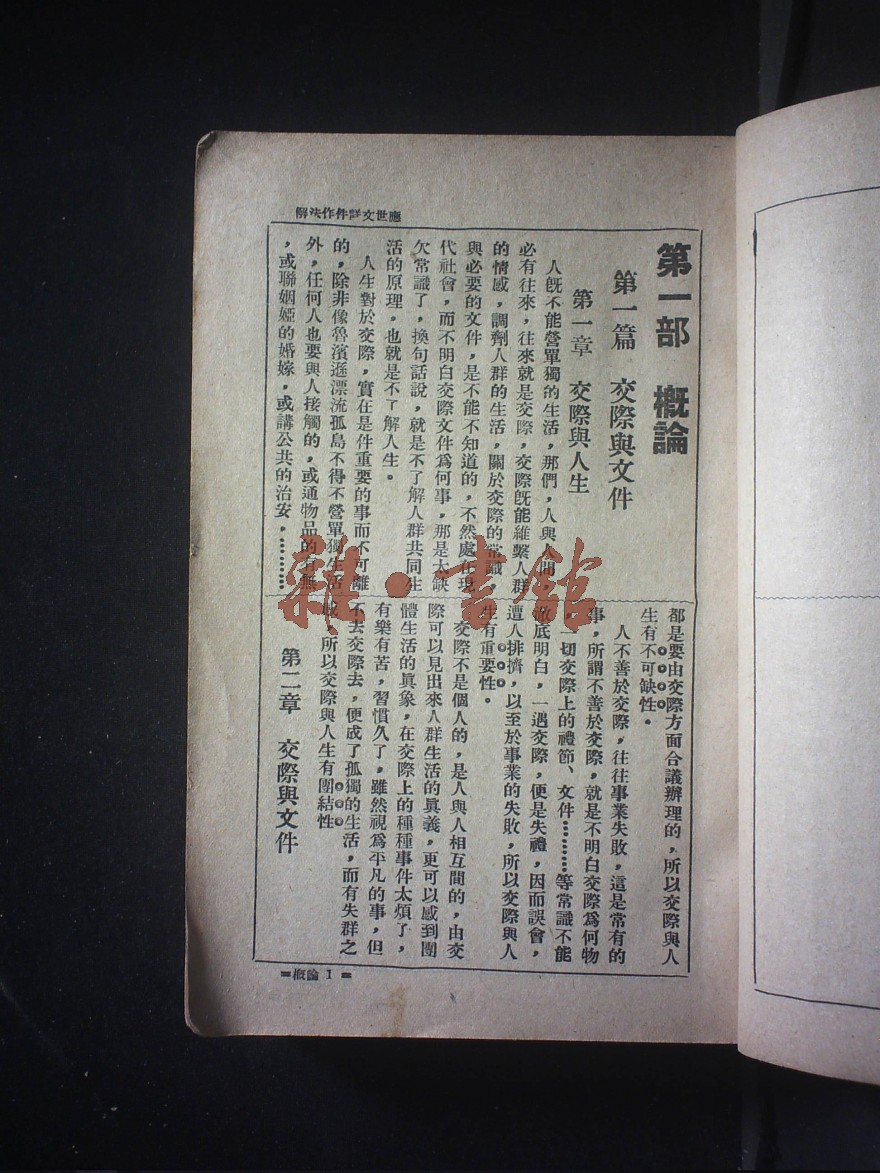 解決作件詳文世應
第一部　概論
第一篇　交際與文件
第一章　交際與人生
人旣不能營單獨的生活，那們，人與人間，
必有往來，往來就是交際，交際旣能維繫人群
的情感，調劑人群的生活，關於交際的常識，
與必要的文件，是不能不知道的，不然處在現
代社會，而不明白交際文件爲何事，那是太缺
欠常識了，換句話說，就是不了解人群共同生
活的原理。也就是不了解人生。
人生對於交際，實在是件重要的事而不可離
的，除非像魯濱遜漂流孤島不得不營單獨生活
外，任何人也要與人接觸的，或通物品的有無
，或聯姻婭的婚嫁，或講公共的治安，…………
都是要由交際方面合議辦理的，所以交際與人
生有不可缺性。
人不善於交際，往往事業失敗，這是常有的
事，所謂不善於交際，就是不明白交際爲何物
，一切交際上的禮節、文件…………等常識不能
澈底明白，一遇交際，便是失禮，因而誤會，
遭人排擠，以至於事業的失敗，所以交際與人
生有重要性。
交際不是個人的，是人與人相互間的，由交
際可以見出來人群生活的眞義，更可以感到團
體生活的眞象，在交際上的種種事件太煩了，
有樂有苦，習慣久了，雖然視爲平凡的事，但
不去交際去，便成了孤獨的生活，而有失群之
感，所以交際與人生有團結性
第二章　交際與文件
＝概論 1 ＝
雜·書館